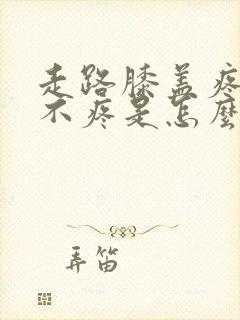 走路膝盖疼
不疼是怎麼
弄笛